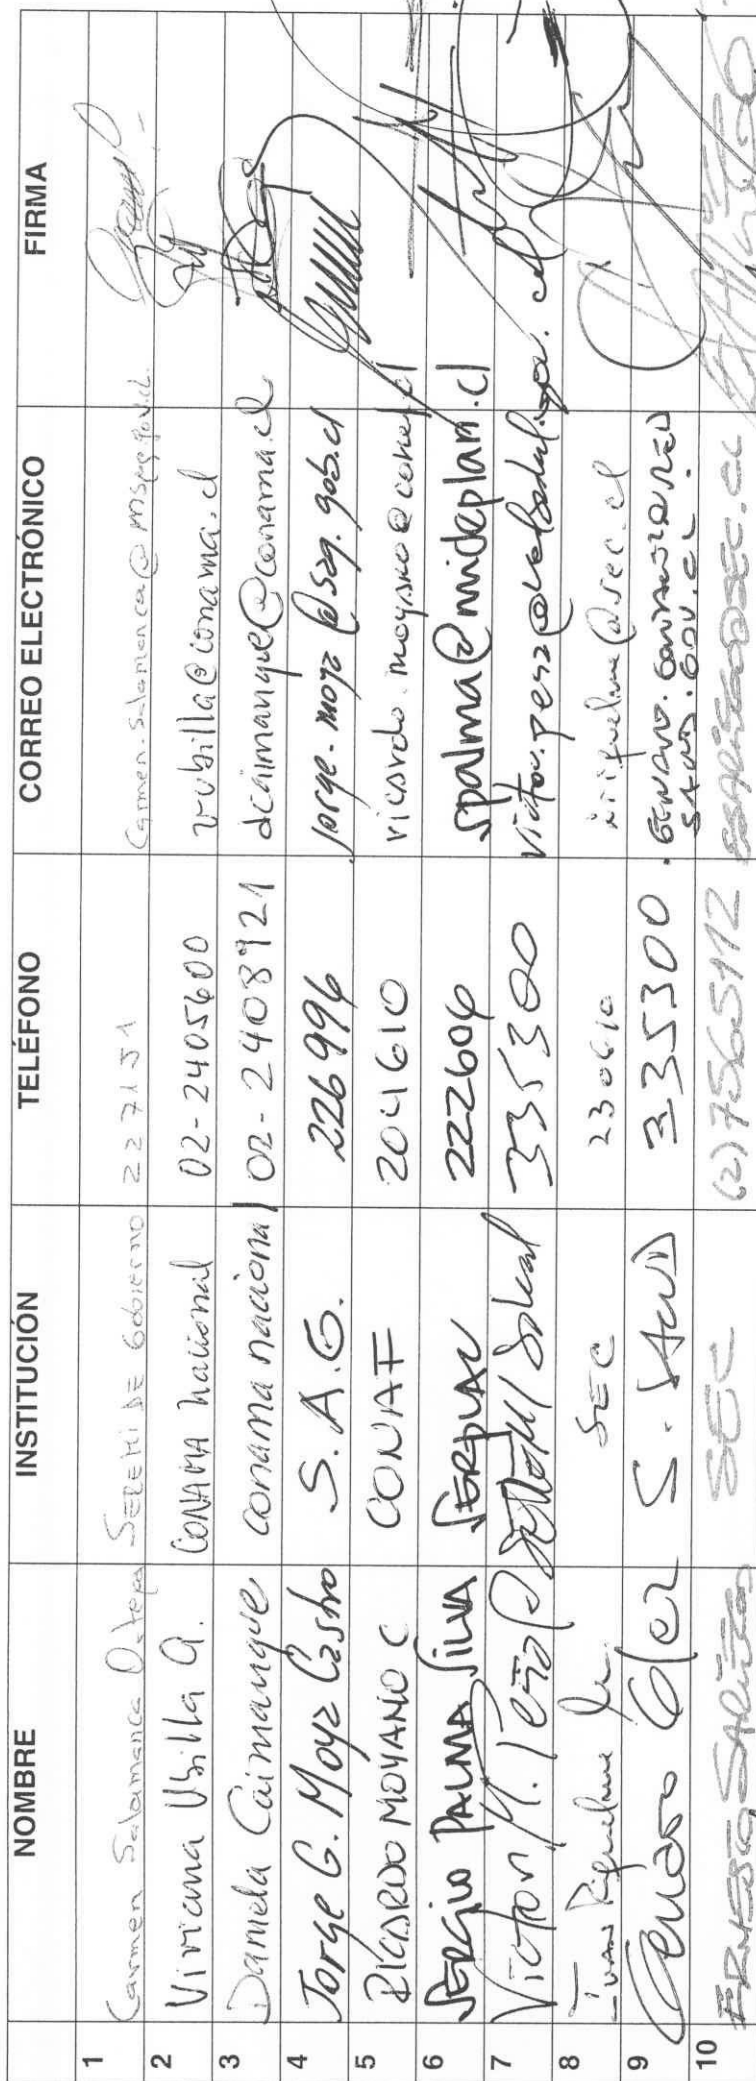 NOMBRE INSTITUCIÓN TELÉFONO CORREO ELECTRÓNICO FIRMA
1 Carmen Salamanca SEREMI DE Gobierno 227151 Carmen.Salamanca@msgg.gov.cl
2 Viviana Ubilla A. CONAMA nacional 02-2405600 vubilla@conama.cl
3 Daniela Caimanque conama nacional 02-2408921 dcaimanque@conama.cl
4 Jorge G. Moya Castro S.A.G. 226996 jorge.moya@sag.gob.cl
5 RICARDO MOYANO C CONAF 204610 ricardo.moyano@conaf.cl
6 SERGIO PALMA SILVA SERPLAC 222606 spalma@mideplan.cl
7 Victor M. Peña 335300
8 Juan Riquelme SEC 230610 @sec.cl
9 Genaro Glez S. SALUD 335300
SALUD.GOV.CL
10 ERNESTO SEC (2)7565112